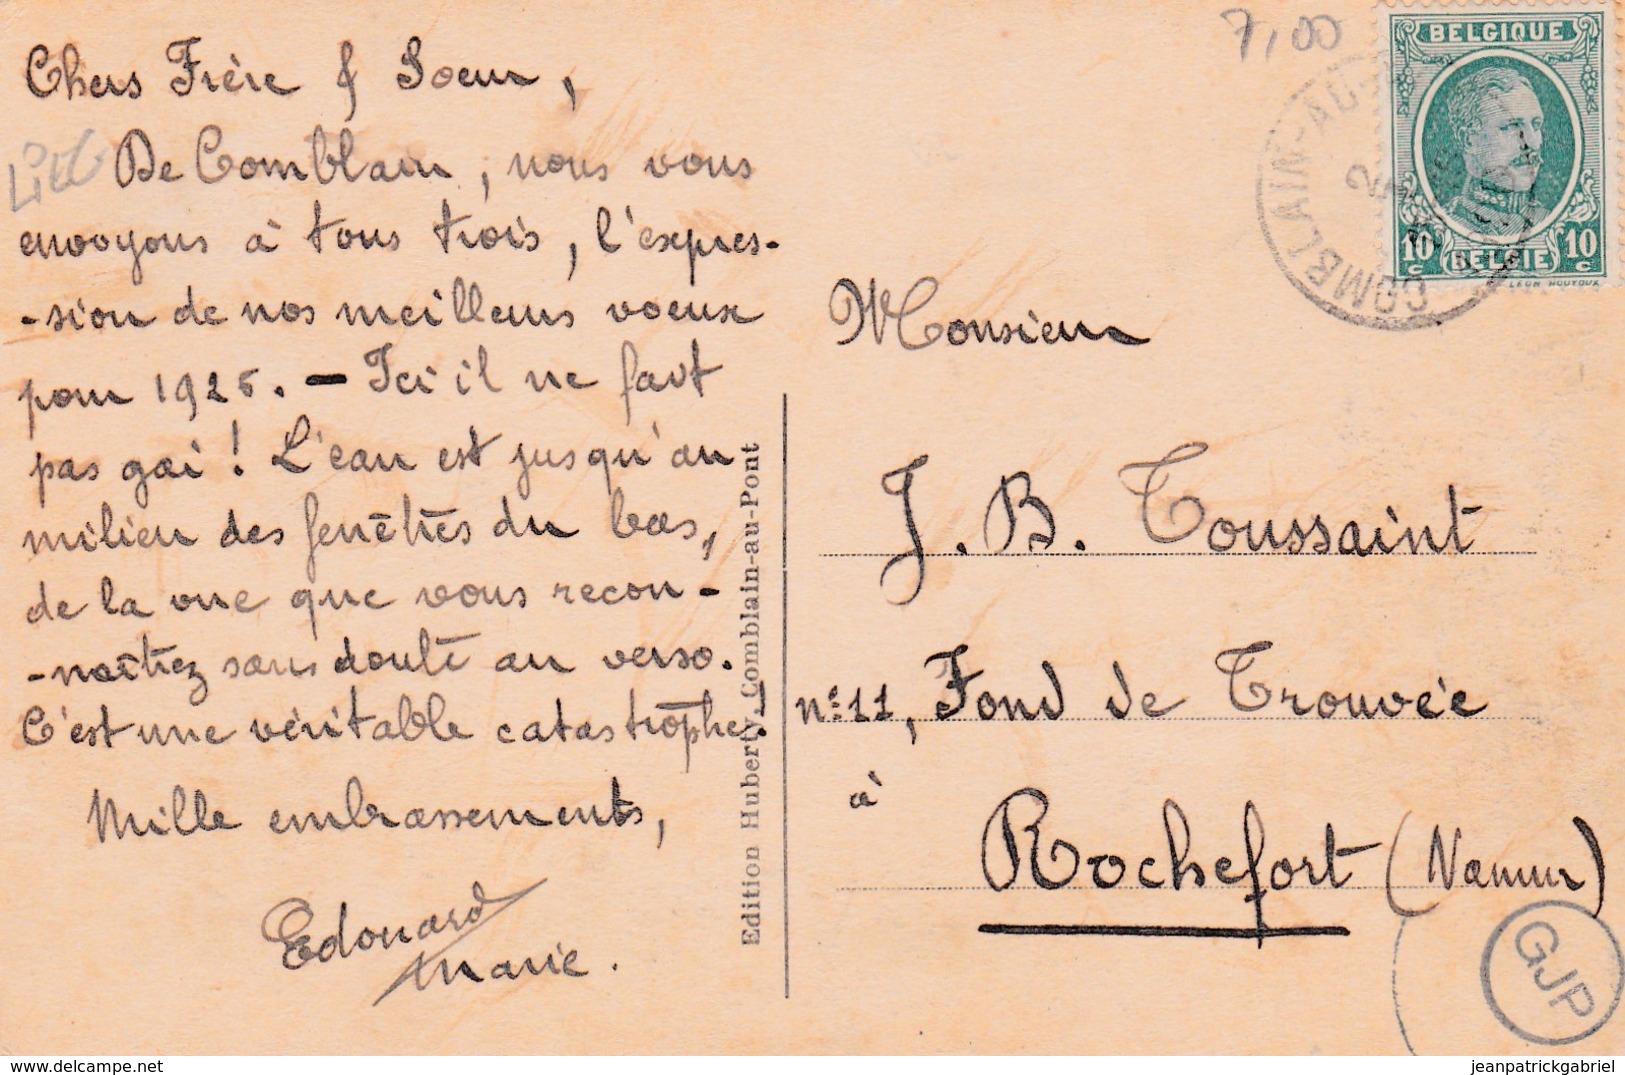 Chers Frère & Soeur,
De Comblain, nous vous
envoyons à tous trois, l'expres-
-sion de nos meilleurs voeux
pour 1926. — Ici il ne fait
pas gai ! L'eau est jusqu'au
milieu des fenêtres du bas,
de la vue que vous recon-
-naîtrez sans doute au verso.
C'est une véritable catastrophe!
Mille embrassements,
Edouard
Marie.
Edition Huberty, Comblain-au-Pont
7,00
BELGIQUE
10 c BELGIE 10 c
LEON HOUYOUX
COMBLAIN-AU-
Monsieur
J. B. Toussaint
n° 11, Fond de Trouvée
à
Rochefort (Namur)
GJP
jeanpatrickgabriel